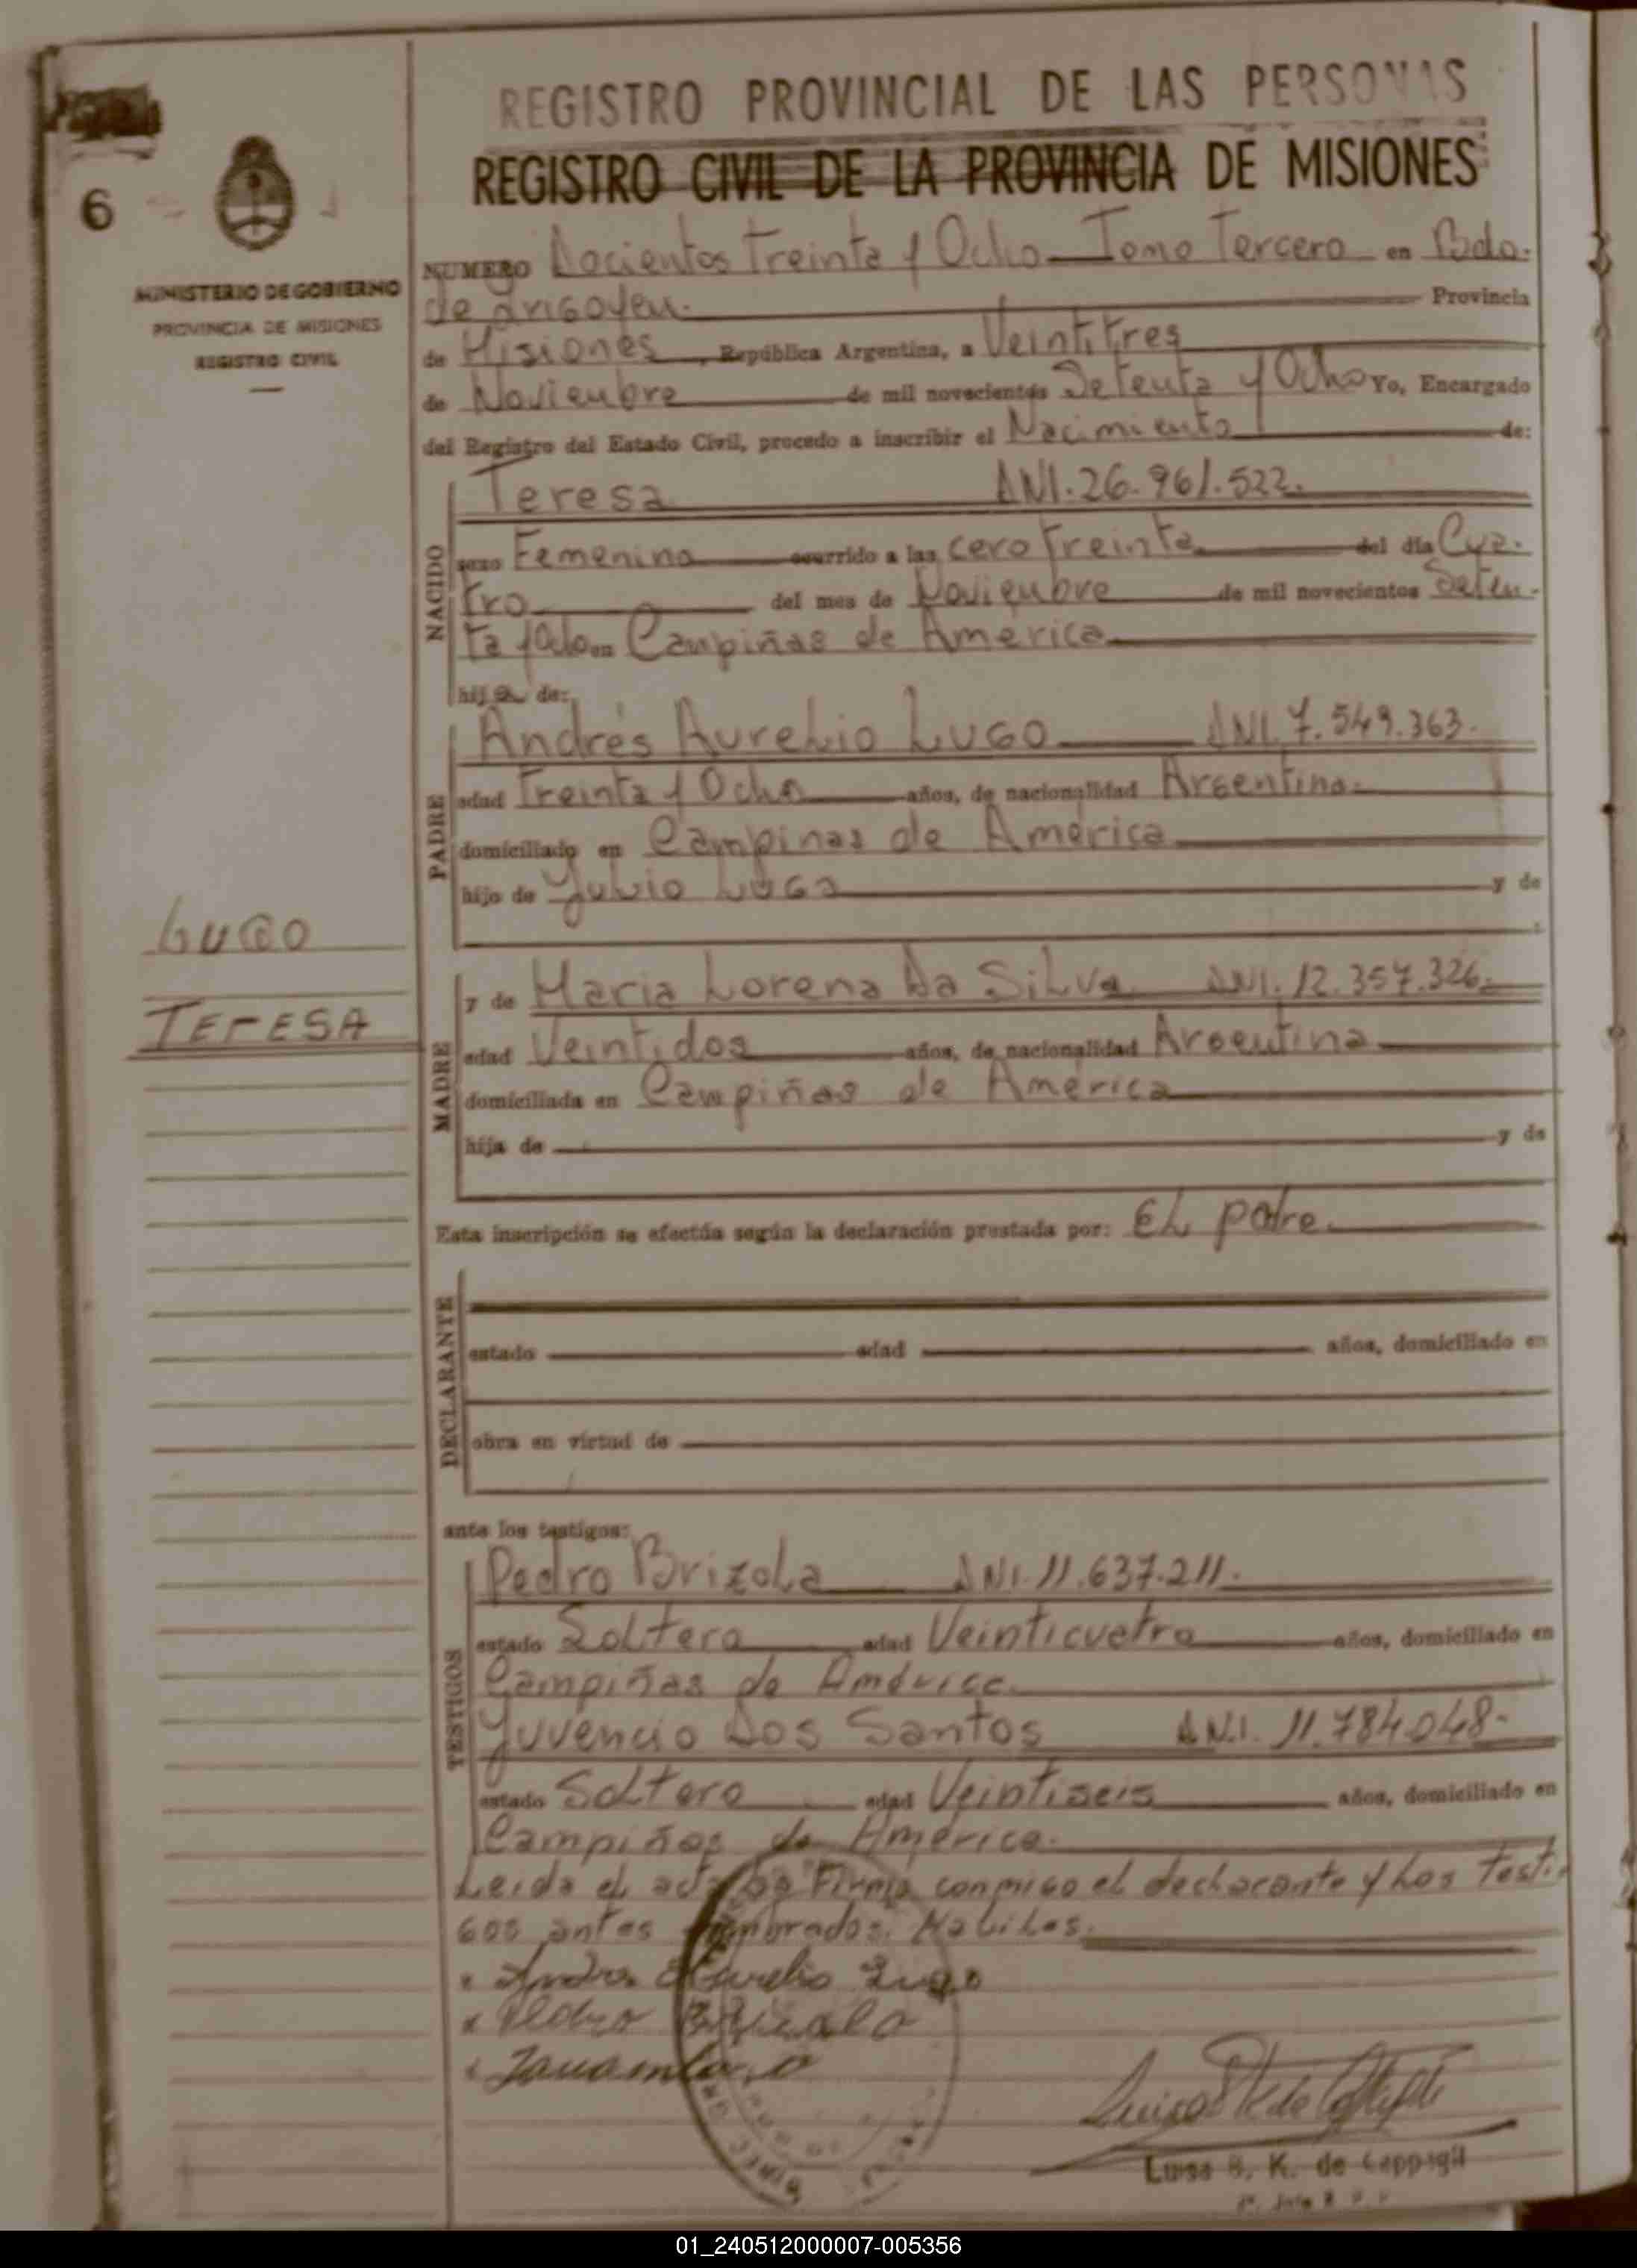 REGISTRO PROVINCIAL DE LAS PERSONAS
REGISTRO CIVIL DE LA PROVINCIA DE MISIONES
6
MINISTERIO DE GOBIERNO
PROVINCIA DE MISIONES
REGISTRO CIVIL
NUMERO Docientos Treinta y Ocho Tomo Tercero en Bdo.
de Irigoyen. Provincia
de Misiones, República Argentina, a Veintitres
de Noviembre de mil novecientos Setenta y Ocho Yo, Encargado
del Registro del Estado Civil, procedo a inscribir el Nacimiento de:
NACIDO
Teresa DNI. 26.961.522.
sexo Femenino ocurrido a las cero treinta del día Cua-
tro del mes de Noviembre de mil novecientos Seten-
ta y Ocho en Campiñas de América
hija de:
PADRE
Andrés Aurelio Lugo DNI. 7.549.363.
edad Treinta y Ocho años, de nacionalidad Argentina.
domiciliado en Campinas de América
hijo de Julio Lugo y de
LUGO
TERESA
MADRE
y de Maria Lorena Da Silva DNI. 12.357.326.
edad Veintidos años, de nacionalidad Argentina
domiciliada en Campiñas de América
hija de y de
Esta inscripción se efectúa según la declaración prestada por: El padre.
DECLARANTE
estado edad años, domiciliado en
obra en virtud de
ante los testigos:
TESTIGOS
Pedro Brizola DNI. 11.637.211.
estado Soltero edad Veinticuatro años, domiciliado en
Campiñas de América.
Juvencio Dos Santos D.N.I. 11.784.048-
estado Soltero edad Veintiseis años, domiciliado en
Campiñas de América.
Leida el acta la Firma conmigo el declarante y Los Testi-
gos antes nombrados. Habiles.
x Andres Aurelio Lugo
x Pedro Brizola
Luisa B. K. de Cappagli
01_240512000007-005356